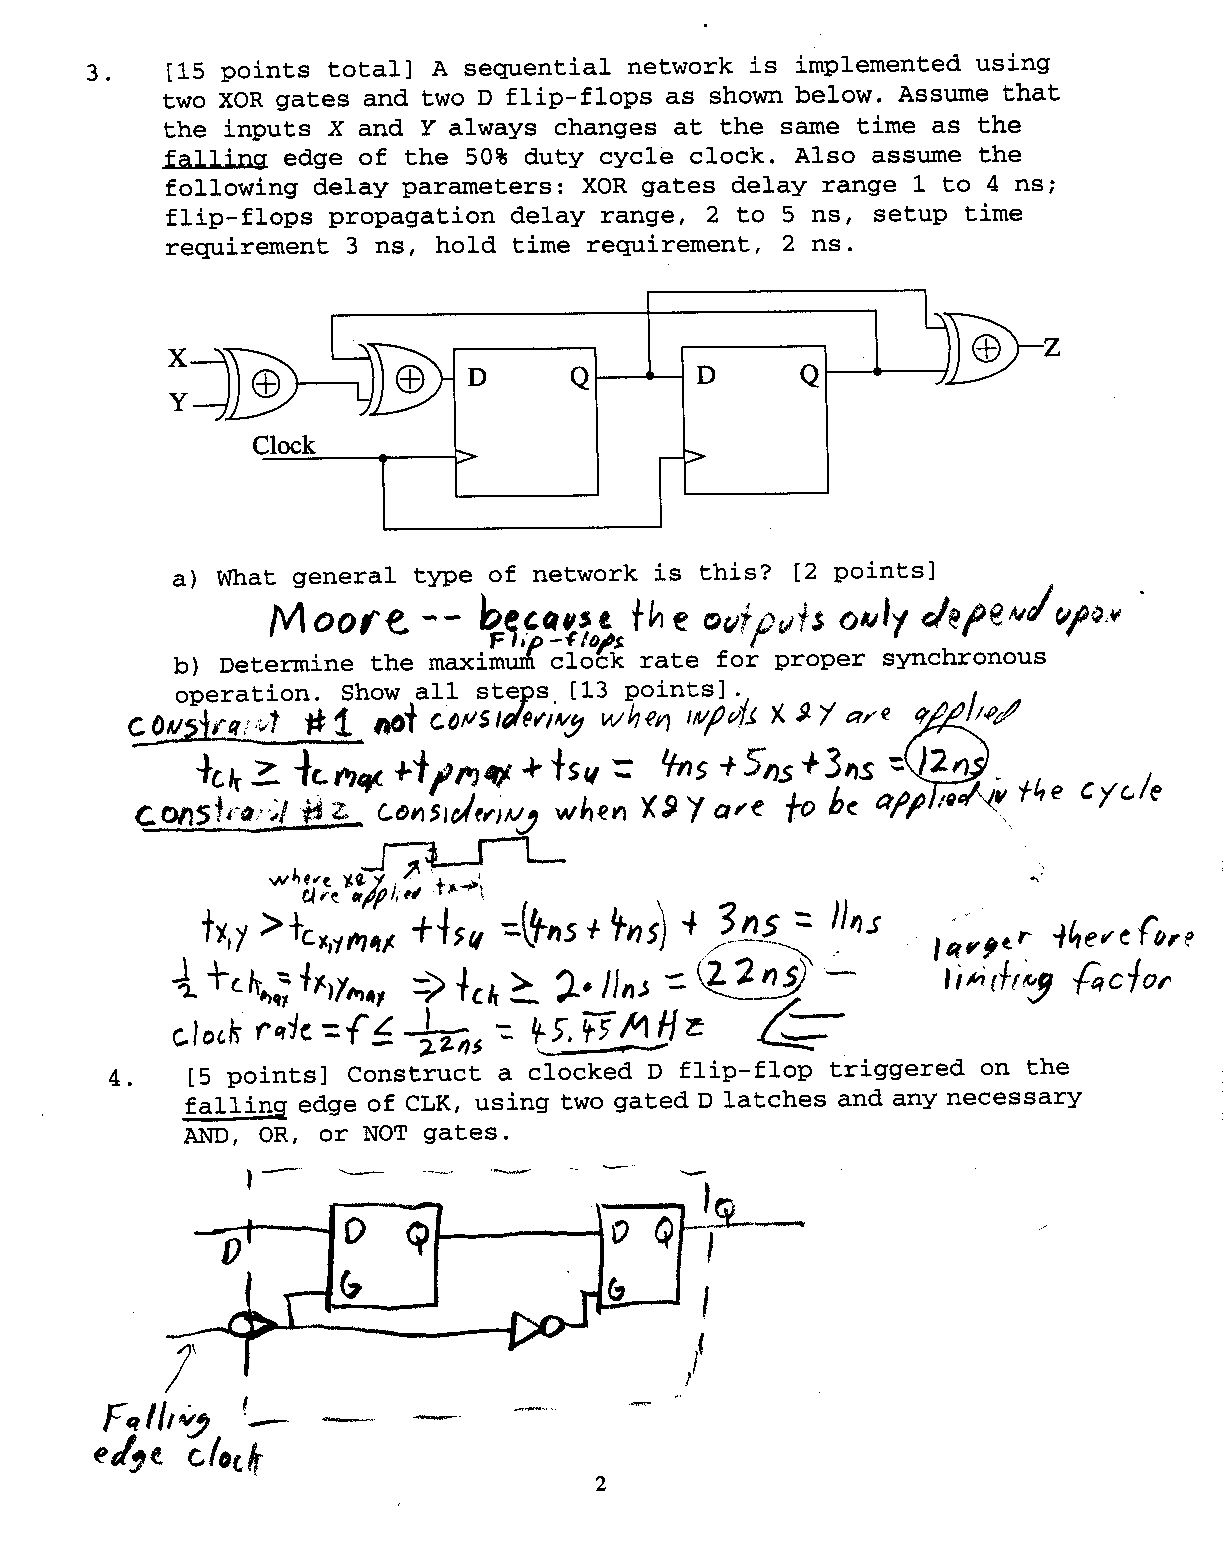 3. [15 points total] A sequential network is implemented using
two XOR gates and two D flip-flops as shown below. Assume that
the inputs X and Y always changes at the same time as the
falling edge of the 50% duty cycle clock. Also assume the
following delay parameters: XOR gates delay range 1 to 4 ns;
flip-flops propagation delay range, 2 to 5 ns, setup time
requirement 3 ns, hold time requirement, 2 ns.
X
Y
Clock
D Q
D Q
Z
a) What general type of network is this? [2 points]
Moore -- because the outputs only depend upon
Flip-flops
b) Determine the maximum clock rate for proper synchronous
operation. Show all steps [13 points].
constraint #1 not considering when inputs X & Y are applied
tck ≥ tcmax + tpmax + tsu = 4ns + 5ns + 3ns = 12ns
constraint #2 considering when X & Y are to be applied in the cycle
where X&Y
are applied tx
tx,y > tcx,ymax + tsu = (4ns + 4ns) + 3ns = 11ns
larger therefore
½ tckmax = tx,ymax ⇒ tck ≥ 2·11ns = 22ns —
limiting factor
clock rate = f ≤ 1/22ns = 45.45 MHz ⇐
4. [5 points] Construct a clocked D flip-flop triggered on the
falling edge of CLK, using two gated D latches and any necessary
AND, OR, or NOT gates.
D
D Q
G
D Q
G
Q
Falling
edge clock
2